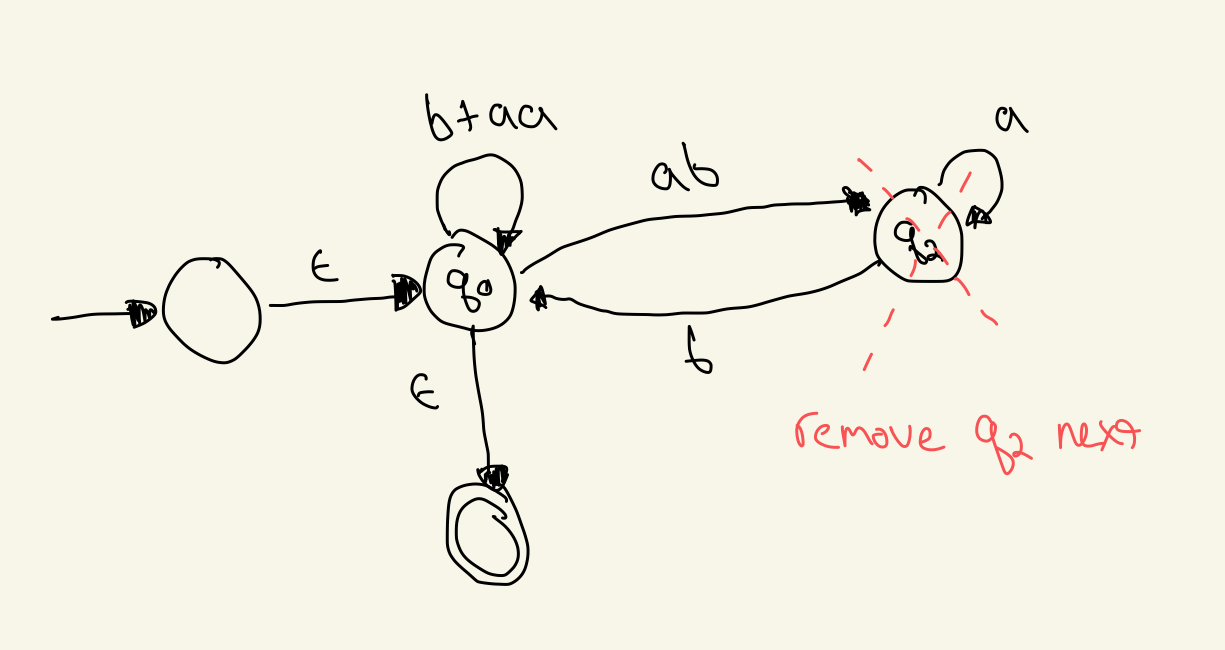 b+aa
a
ab
q₂
ϵ
q₀
b
ϵ
remove q₂ next